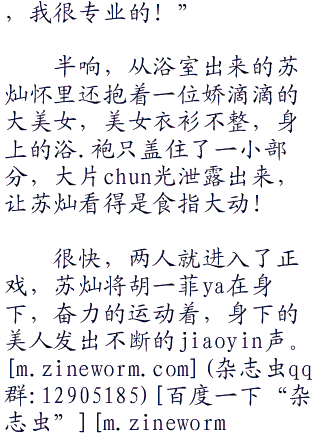 ，我很专业的！”
半响，从浴室出来的苏
灿怀里还抱着一位娇滴滴的
大美女，美女衣衫不整，身
上的浴.袍只盖住了一小部
分，大片chun光泄露出来，
让苏灿看得是食指大动！
很快，两人就进入了正
戏，苏灿将胡一菲ya在身
下，奋力的运动着，身下的
美人发出不断的jiaoyin声。
[m.zineworm.com](杂志虫qq
群:12905185)[百度一下“杂
志虫”][m.zineworm